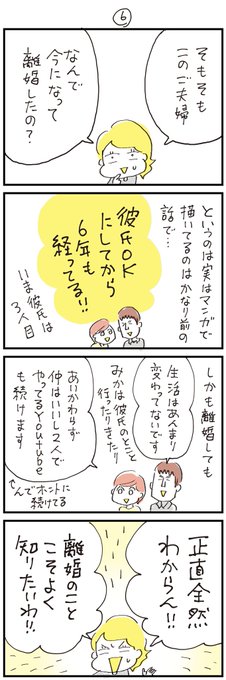 ⑥
そもそも
このご夫婦
なんで
今になって
離婚したの？
というのは実はマンガで
描いてるのはかなり前の
話で…
彼氏OK
にしてから
6年も
経ってる!!
いま彼氏は
3人目
しかも離婚しても
生活はあんまり
変わってないです
みかは彼氏のとこと
行ったりきたり
あいかわらず
仲はいいし2人で
やってるYoutube
も続けます
んでホントに
続けてる
正直全然
わからん!!
離婚のこと
こそよく
知りたいわ!!